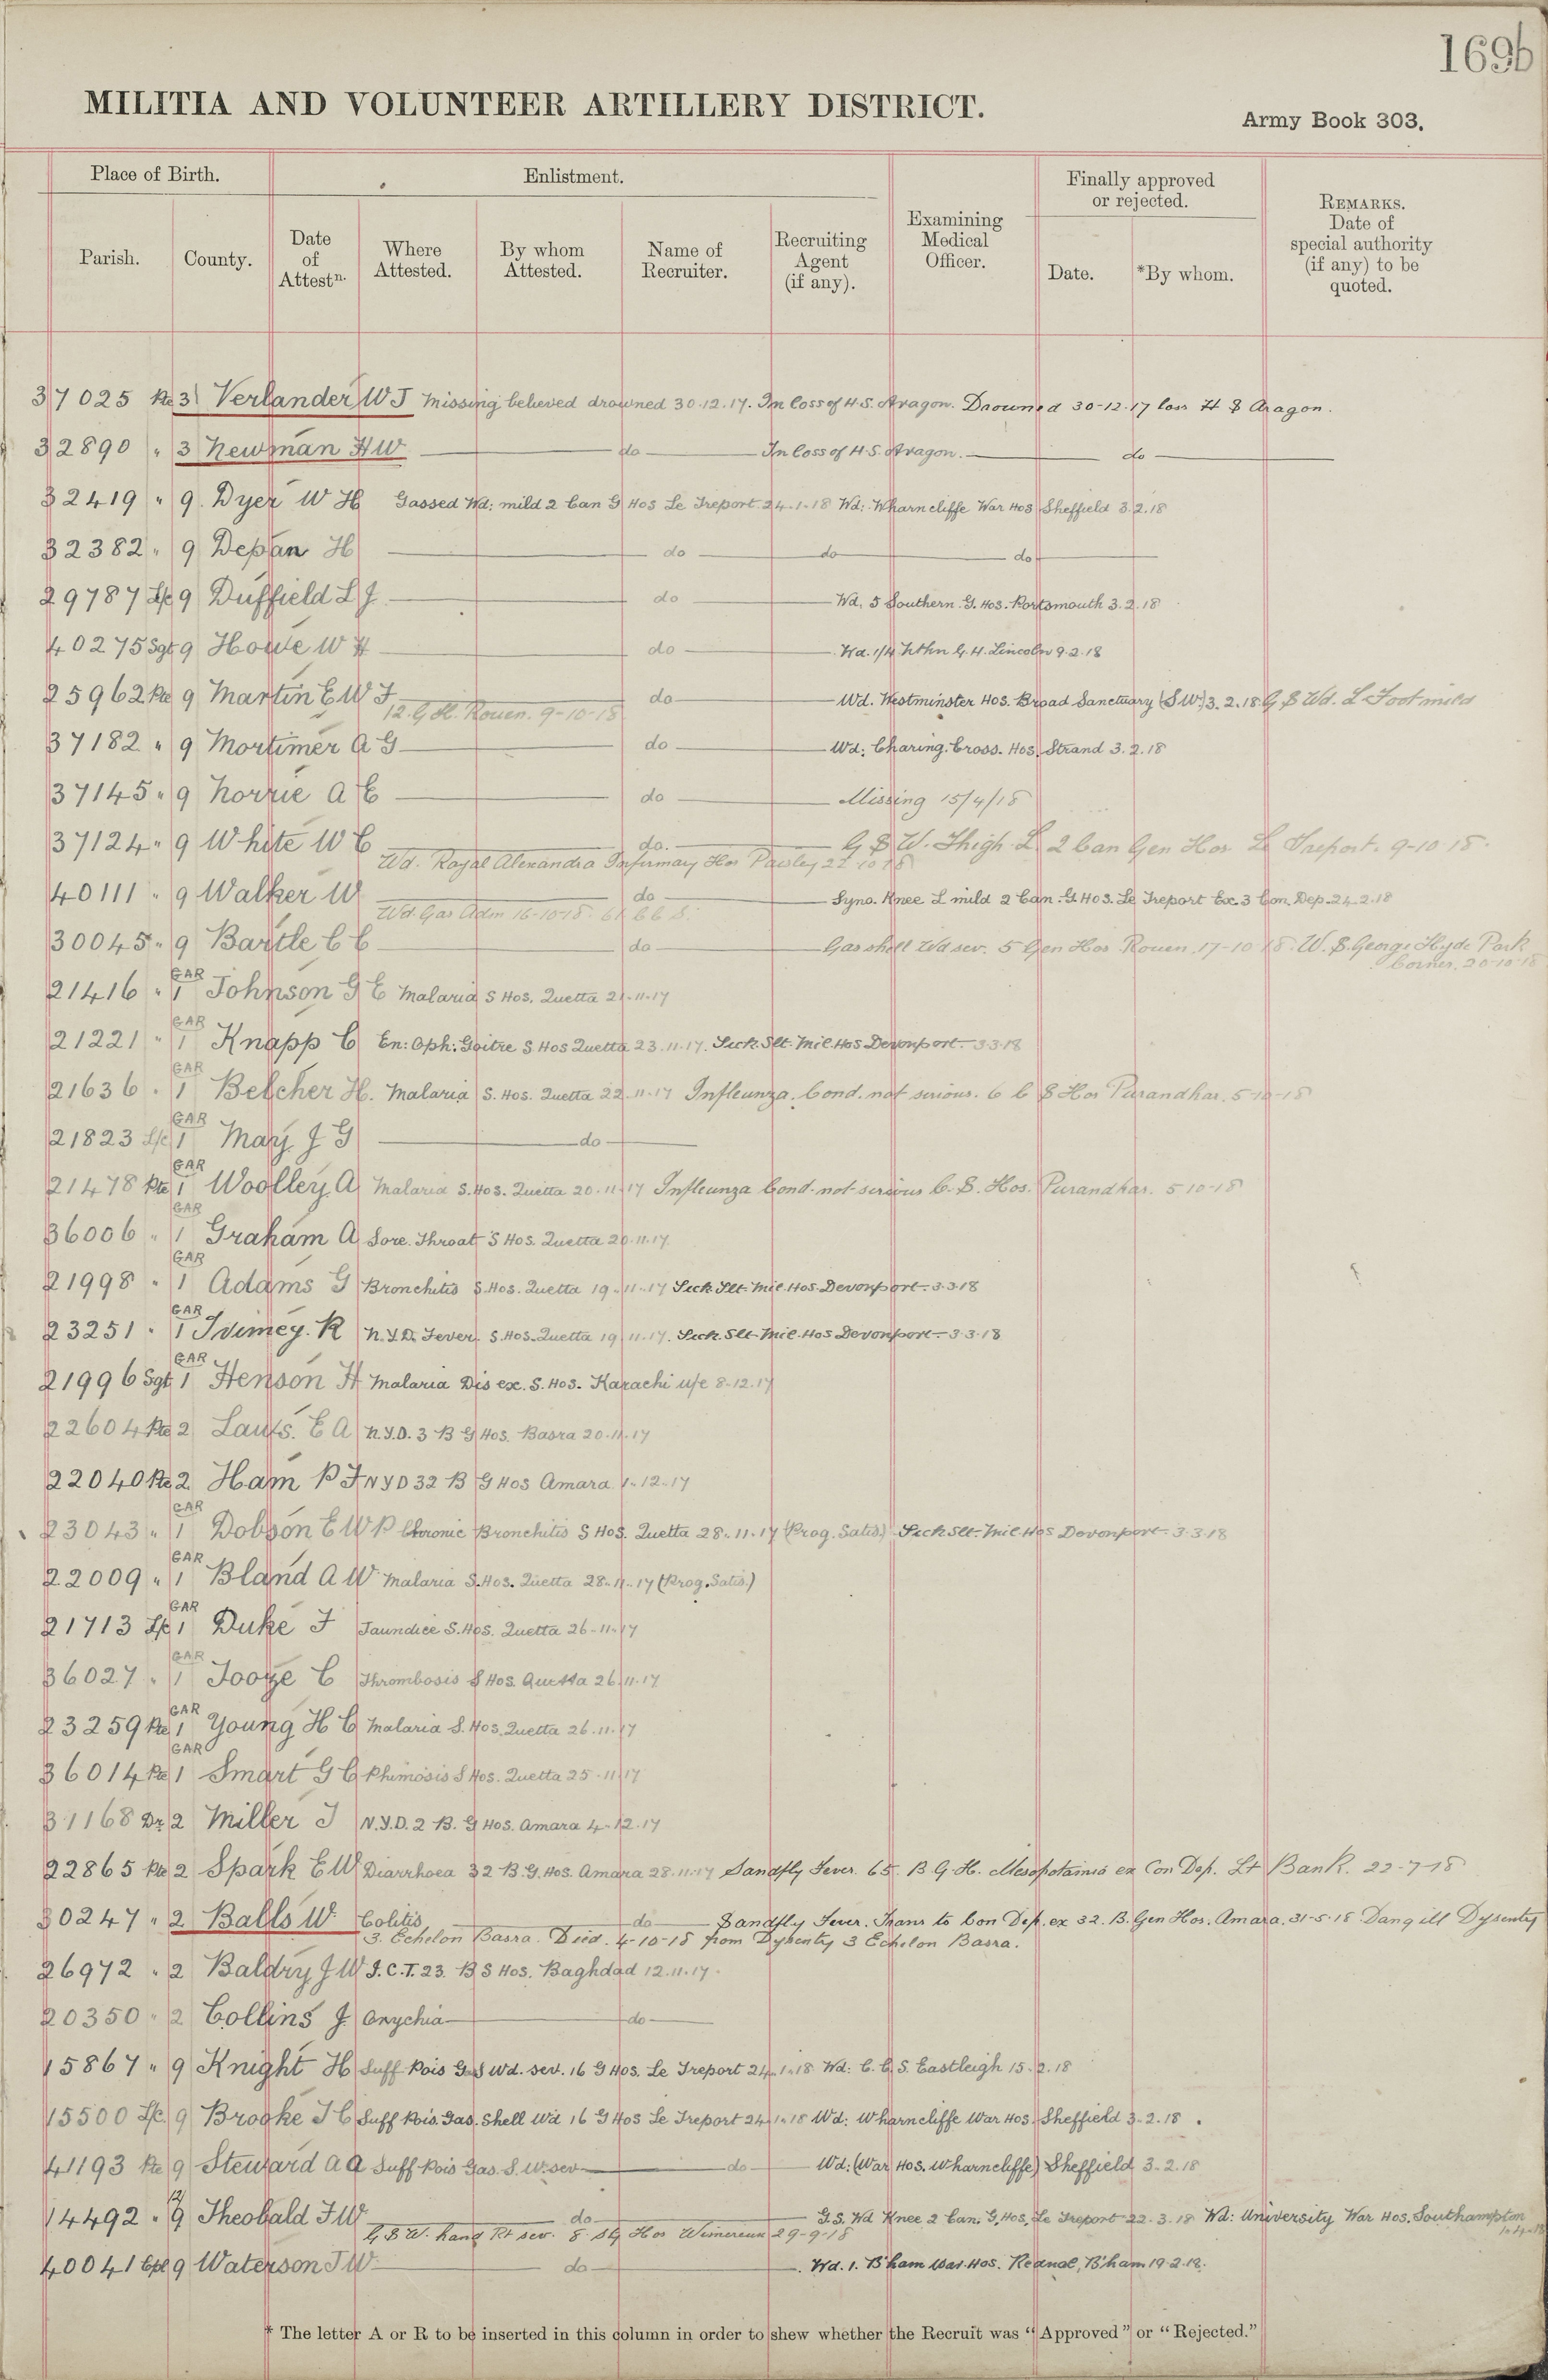 169b
MILITIA AND VOLUNTEER ARTILLERY DISTRICT.
Army Book 303.
Place of Birth.
Enlistment.
Finally approved or rejected.
Parish.
County.
Date of Attestn.
Where Attested.
By whom Attested.
Name of Recruiter.
Recruiting Agent (if any).
Examining Medical Officer.
Date.
*By whom.
REMARKS. Date of special authority (if any) to be quoted.
37025 Pte 3 Verlander W J Missing believed drowned 30.12.17. In loss of H.S. Aragon. Drowned 30-12-17 loss H S Aragon.
32890 " 3 Newman H W do In loss of H.S. Aragon. do
32419 " 9. Dyer W H Gassed Wd: mild 2 Can G Hos Le Treport 24-1-18 Wd: Wharncliffe War Hos Sheffield 3.2.18
32382 " 9 Depan H do do do
29787 L/c 9 Duffield L J do Wd. 5 Southern. G. Hos. Portsmouth 3.2.18
40275 Sgt 9 Howe W H do Wd. 1/4 Nthn G. H. Lincoln 9.2.18
25962 Pte 9 Martin E W F do Wd. Westminster Hos. Broad Sanctuary (S W.) 3.2.18. G S Wd. L Foot mild
12. G H. Rouen. 9-10-18
37182 " 9 Mortimer A G do Wd. Charing. Cross. Hos. Strand 3.2.18
37145 " 9 Norrie A E do Missing 15/4/18
37124 " 9 White W C do. G S W. Thigh L 2 Can Gen Hos Le Treport. 9-10-18.
Wd. Royal Alexandra Infirmary Hos Paisley 22-10-18
40111 " 9 Walker W do Syno. Knee L mild 2 Can. G Hos. Le Treport Ex. 3 Con. Dep. 24.2.18
Wd Gas Adm 16-10-18. 61 C C S.
30045 " 9 Bartle C C do Gas shell Wd sev. 5 Gen Hos Rouen. 17-10-18. W. S. George Hyde Park
Corner. 20-10-18
21416 " GAR 1 Johnson G E Malaria S Hos. Quetta 21-11-17
21221 " GAR 1 Knapp C En: Oph: Goitre S Hos Quetta 23.11.17. Sick Slt. Mil. Hos Devonport 3-3-18
21636 " GAR 1 Belcher H. Malaria S. Hos. Quetta 22.11.17 Infleunza. Cond. not serious. 6 C S Hos Purandhar. 5-10-18
21823 L/c GAR 1 May J G do
21478 Pte GAR 1 Woolley A Malaria S. Hos. Quetta 20.11.17 Infleunza Cond. not serious C. S. Hos. Purandhar. 5-10-18
36006 " GAR 1 Graham A Sore. Throat S Hos. Quetta 20.11.17.
21998 " GAR 1 Adams G Bronchitis S. Hos. Quetta 19-11-17 Sick Slt. Mil. Hos. Devonport 3.3.18
23251 " GAR 1 Ivimey. R N.Y.D. Fever. S. Hos. Quetta 19.11.17. Sick. Slt. Mil. Hos Devonport 3.3.18
21996 Sgt GAR 1 Henson H Malaria Dis ex. S. Hos. Karachi u/e 8.12.17
22604 Pte 2 Laws. E A N.Y.D. 3 B G Hos. Basra 20.11.17
22040 Pte 2 Ham P F N Y D 32 B G Hos Amara 1-12-17
23043 " GAR 1 Dobson E W P Chronic Bronchitis S Hos. Quetta 28.11.17 (Prog. Satis.) Sick Slt. Mil. Hos Devonport 3.3.18
22009 " GAR 1 Bland A W Malaria S. Hos. Quetta 28.11.17 (Prog. Satis.)
21713 L/c GAR 1 Duke F Jaundice S. Hos. Quetta 26-11-17
36027 " GAR 1 Tooze C Thrombosis S Hos. Quetta 26.11.17
23259 Pte GAR 1 Young H C Malaria S. Hos. Quetta 26.11.17
36014 Pte GAR 1 Smart G C Phimosis S Hos. Quetta 25-11-17
31168 Dr 2 Miller J N.Y.D. 2 B. G Hos. Amara 4-12-17
22865 Pte 2 Spark E W Diarrhoea 32 B. G. Hos. Amara 28.11.17 Sandfly Fever. 65. B G H. Mesopotamia ex Con Dep. Lt Bank. 22-7-18
30247 " 2 Balls W. Colitis do Sandfly Fever. Trans to Con Dep. ex 32. B. Gen Hos. Amara. 31-5-18 Dang ill Dysentry
3. Echelon Basra. Died. 4-10-18 from Dysentry 3 Echelon Basra.
26972 " 2 Baldry J W I.C.T. 23. B S Hos. Baghdad 12.11.17.
20350 " 2 Collins J. Onychia do
15867 " 9 Knight H Suff Pois Gas Wd. sev. 16 G Hos. Le Treport 24.1.18 Wd: C. C. S. Eastleigh 15.2.18
15500 L/c. 9 Brooke J C Suff Pois Gas. Shell Wd 16 G Hos Le Treport 24.1.18 Wd: Wharncliffe War Hos. Sheffield 3.2.18.
41193 Pte 9 Steward A A Suff Pois Gas. S. W. sev do Wd: (War Hos. Wharncliffe) Sheffield 3.2.18
14492 " 9 Theobald F W do G.S. Wd Knee 2 Can. G. Hos. Le Treport 22.3.18 Wd: University War Hos. Southampton
G S W. hand Rt sev. 8 Stg Hos Wimereux 29-9-18
40041 Cpl 9 Waterson J W do Wd. 1. B'ham War Hos. Rednal, B'ham 19.2.18.
* The letter A or R to be inserted in this column in order to shew whether the Recruit was "Approved" or "Rejected."